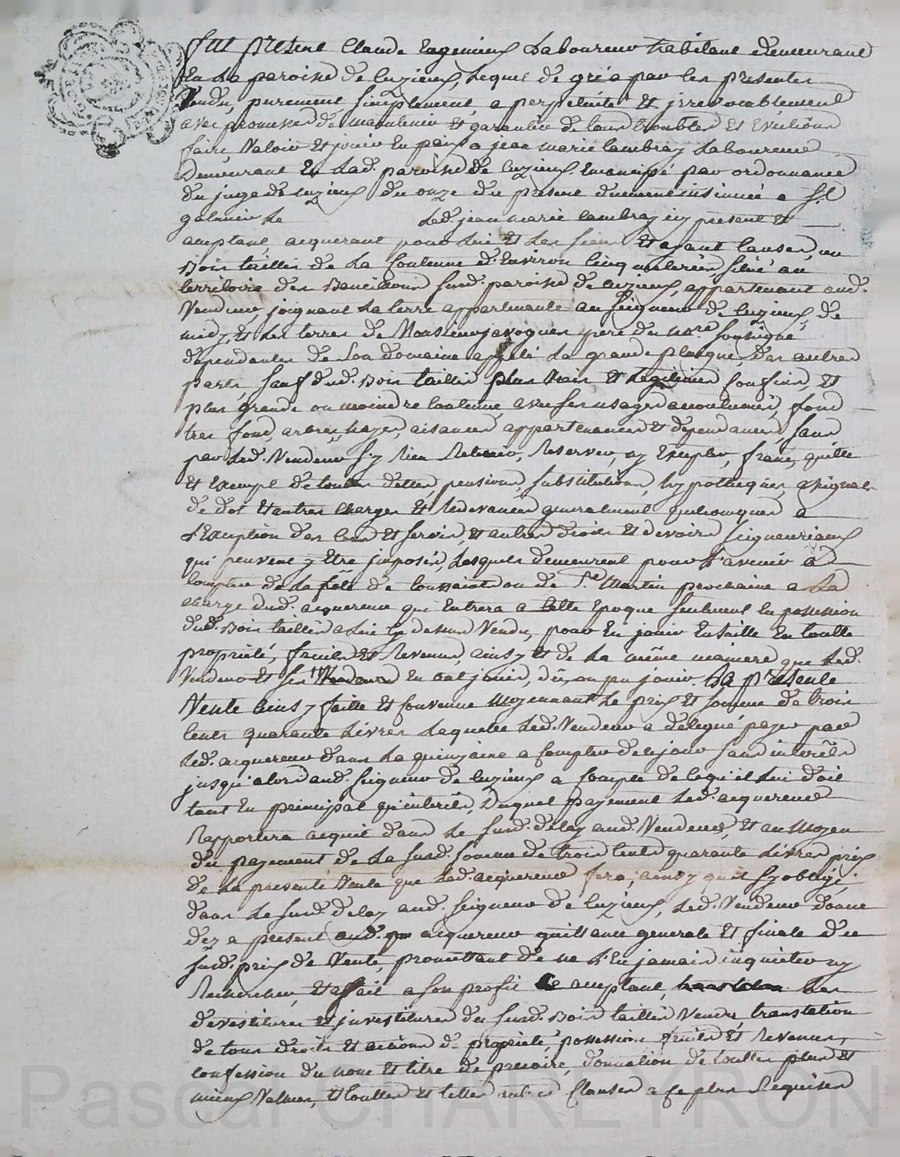 fut present Claude Eagemieux Laboureur habitant demeurant
En La paroisse de Cuzieux, Lequel de gré a par les presentes
Vendu, purement simplement, a perpetuité et irrevocablement
avec promesse de maintenir et garantir de tous troubles et Evictions
faire Valoir et jouir En paix a jean marie Cambray Laboureur
Demeurant En Lad. paroisse de Cuzieux Emancipé par ordonnance
du juge de Cuzieux du onze du present duement insinuée a St
galmier Le Led. jean marie Cambray icy present et
acceptant, acquerant pour Lui et Les siens Et ayant Causes, un
Bois taillis de La Contenue d'Environ Cinq metérées situé au
territoire des susd. paroisse de Cuzieux, appartenant aud.
Vendeur, joignant La terre appartenante au seigneur de Cuzieux de
midy, et Les terres de Monsieur javogues pere du nore soussigné
dependantes de son domaine appellé La grande des autres
parts, sauf dud. Bois taillis plus Vrais et Legitimes Confins, et
plus grande ou moindre Contenue avec ses usages fond
tres fond, arbres hayes, aisances appartenances et dependances, sans
par Led. Vendeur s'y Rien Retenir, Reserver, ny Excepter, franc, quitte
et Exempt de toutes dettes, pensions, substitutions, hypotheques,
de dot et autres Charges et Redevances generalement quelconques a
L'Exception des Cens et servis, et autres droits et devoirs seigneuriaux
qui peuvent y Etre imposés, Lesquels demeurent pour L'avenir a
Compter de La fete de toussaint ou de St Martin prochaine a La
charge dud. acquereur qui Entrera a Cette Epoque seulement En possession
dud. Bois taillis a Lui Cy dessus Vendu, pour En jouir Ensuitte En toutte
proprieté, fruits et Revenus, ainsy et de La même maniere que Led.
Vendeur et ses En ont jouis, dû, ou pu jouir. La presente
Vente ainsy faitte et Convenue moyennant Le prix et somme de trois
Cents quarante Livres Laquelle Led. Vendeur a delegué payer par
Led. acquereur dans La quinzaine a Compter de Ce jour sans interêts
jusqu'alors aud. seigneur de Cuzieux a Compte de Ce qu'il Lui doit
tant En principal qu'interêts, Duquel payement Led. acquereur
Rapportera acquit dans Le susd. delay aud. Vendeur, et au moyen
du payement de La susd. somme de trois Cents quarante Livres prix
de La presente Vente que Led. acquereur fera, ainsy qu'il s'y oblige
dans Le susd. delay aud. seigneur de Cuzieux, Led. Vendeur donne
dez a present aud. acquereur quittance generale et finale de Ce
susd. prix de Vente, promettant de ne L'En jamais inquieter ny
Rechercher, Et a fait a son profit Ce acceptant, Les
devestitures et investitures du susd. Bois taillis Vendu, translation
de tous droits et actions de proprieté, possession fruits et Revenus,
confession du nom et titre de precaire, donnation de touttes plus et
mieux Values, et touttes et telles autres Clauses a Ce plus Requises
Pascal CHAREYRON